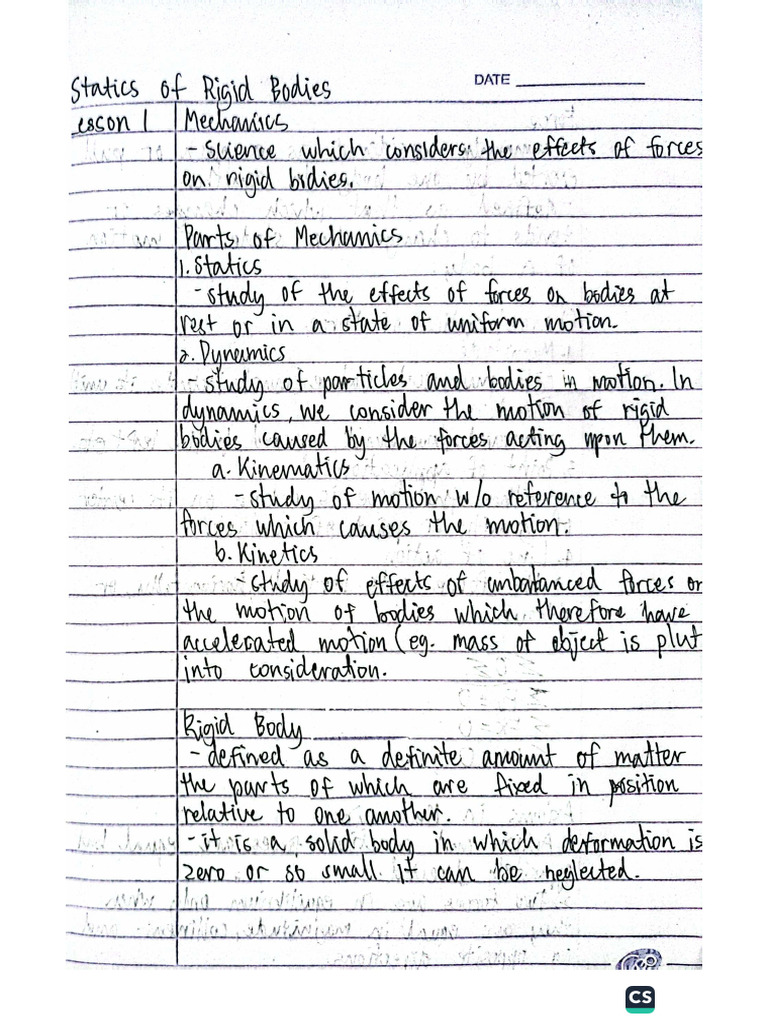 Statics of Rigid Bodies DATE
esson 1 Mechanics
- science which considers the effects of forces
on rigid bodies.
Parts of Mechanics
1. Statics
- study of the effects of forces on bodies at
rest or in a state of uniform motion.
2. Dynamics
- study of particles and bodies in motion. In
dynamics, we consider the motion of rigid
bodies caused by the forces acting upon them.
a. Kinematics
- study of motion w/o reference to the
forces which causes the motion.
b. Kinetics
- study of effects of unbalanced forces on
the motion of bodies which therefore have
accelerated motion (eg. mass of object is plut
into consideration.
Rigid Body
- defined as a definite amount of matter
the parts of which are fixed in position
relative to one another.
- it is a solid body in which deformation is
zero or so small it can be neglected.
CS